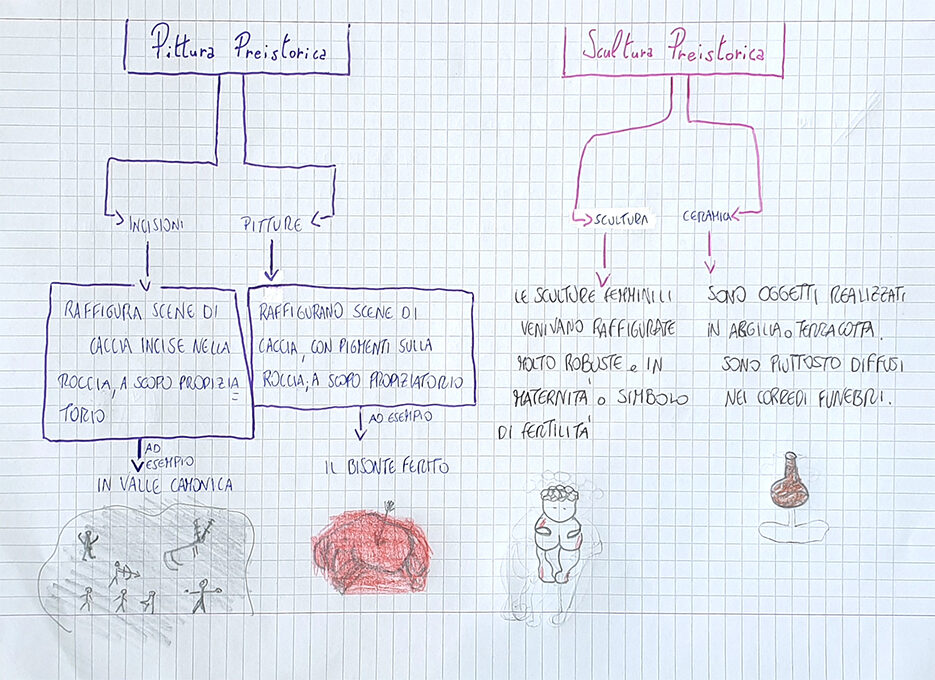 Pittura Preistorica
INCISIONI
PITTURE
RAFFIGURA SCENE DI
CACCIA INCISE NELLA
ROCCIA, A SCOPO PROPIZIA
TORIO
AD
ESEMPIO
IN VALLE CAMONICA
RAFFIGURANO SCENE DI
CACCIA, CON PIGMENTI SULLA
ROCCIA, A SCOPO PROPIZIATORIO
AD ESEMPIO
IL BISONTE FERITO
Scultura Preistorica
SCULTURA
CERAMICA
LE SCULTURE FEMMINILI
VENIVANO RAFFIGURATE
MOLTO ROBUSTE e IN
MATERNITÀ o SIMBOLO
DI FERTILITÀ
SONO OGGETTI REALIZZATI
IN ARGILIA o TERRACOTTA.
SONO PIUTTOSTO DIFFUSI
NEI CORREDI FUNEBRI.